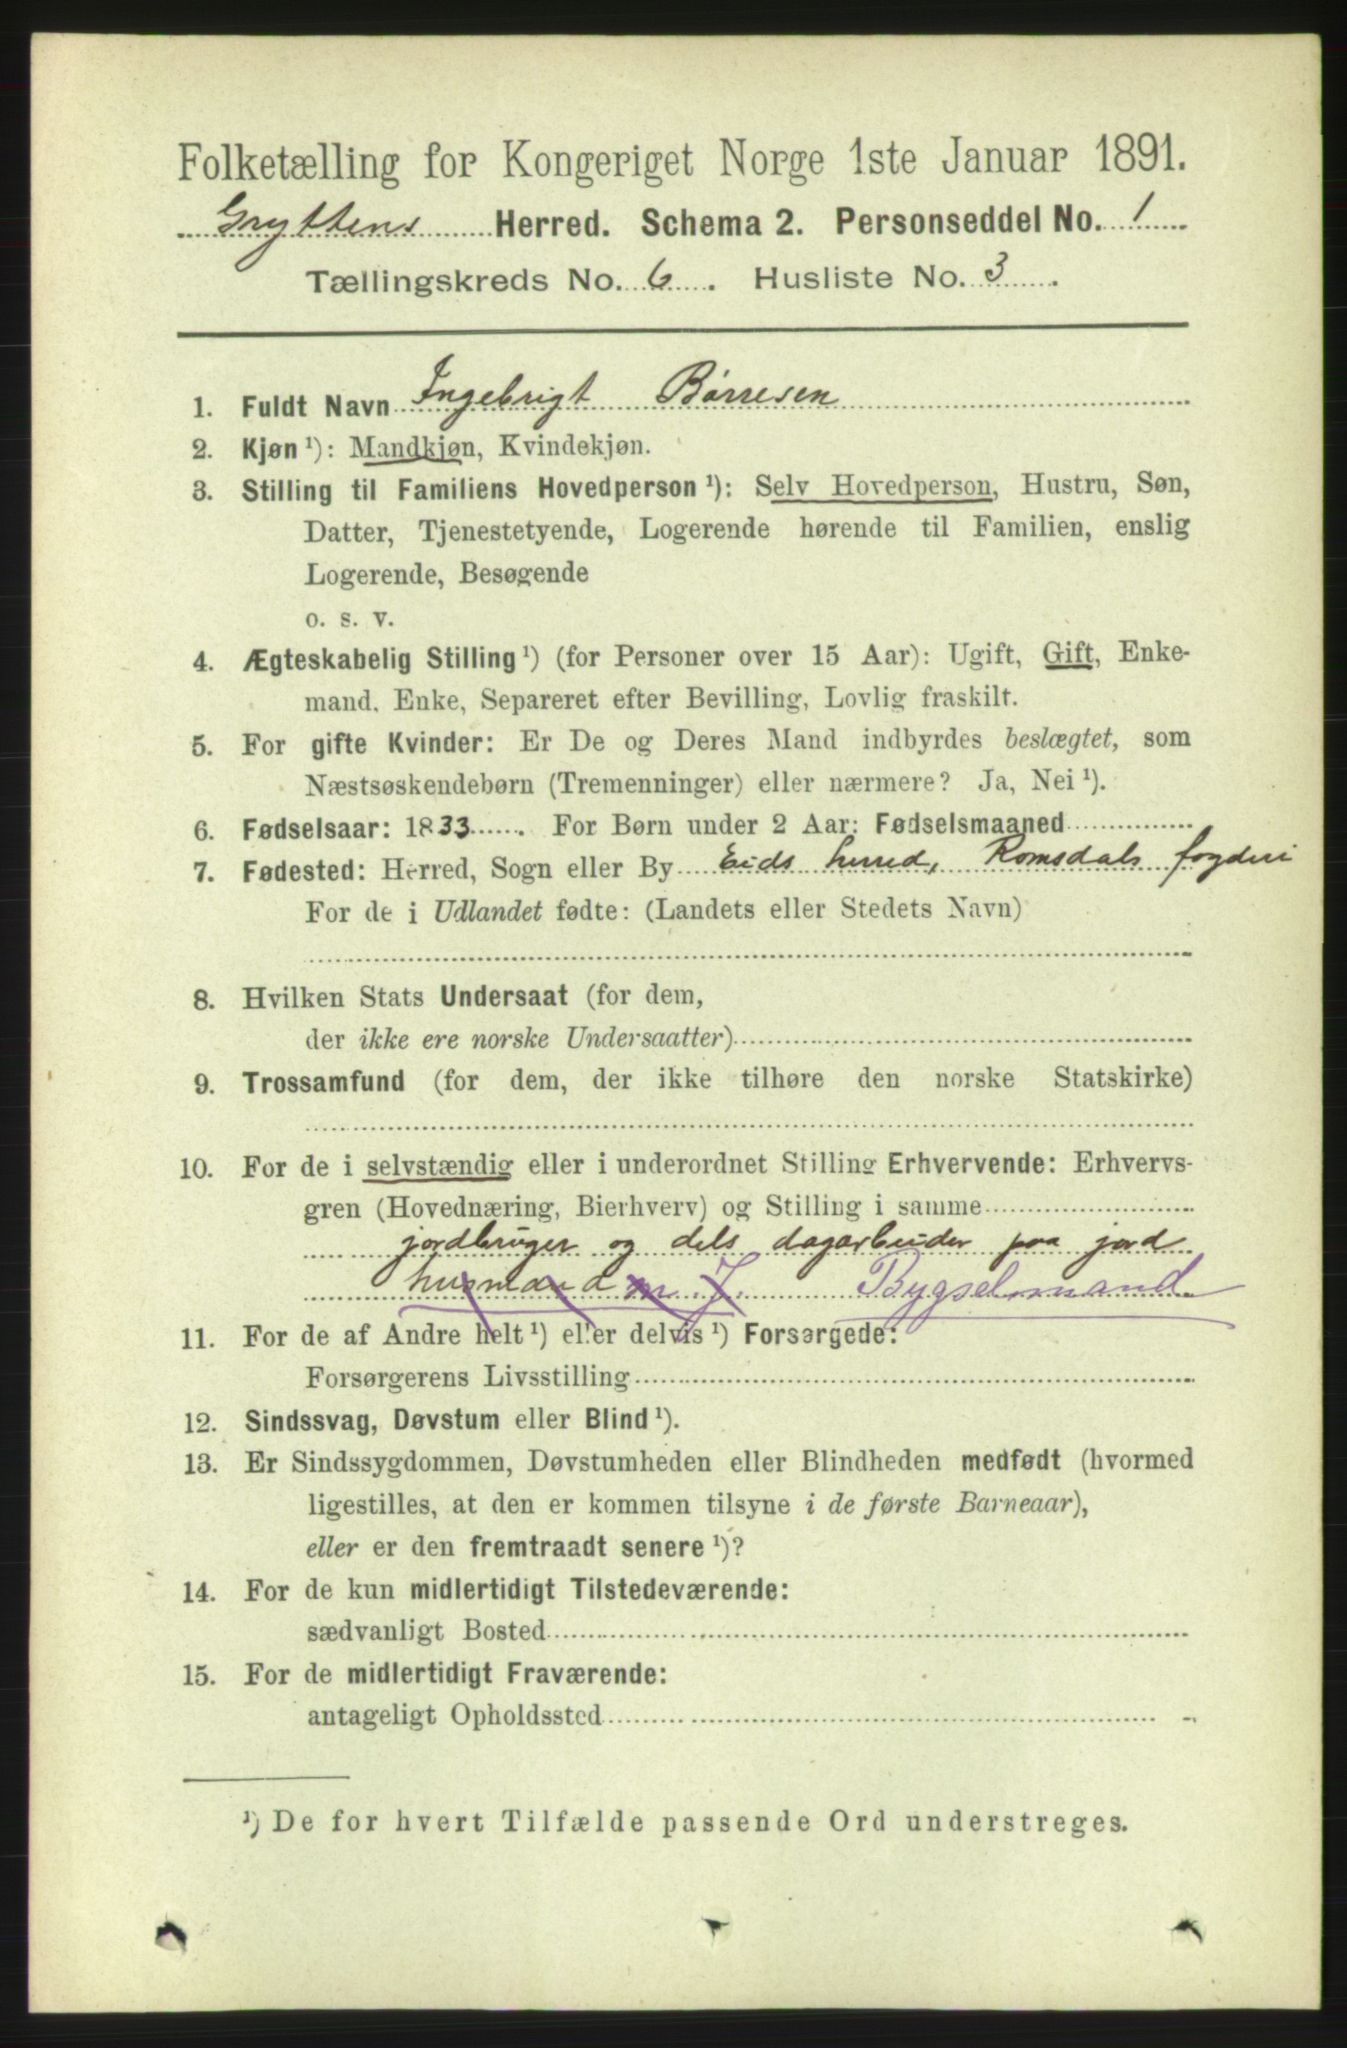 Folketælling for Kongeriget Norge 1ste Januar 1891.
Gryttens Herred. Schema 2. Personseddel No. 1
Tællingskreds No. 6. Husliste No. 3.
1. Fuldt Navn Ingebrigt Børresen
2. Kjøn ¹): Mandkjøn, Kvindekjøn.
3. Stilling til Familiens Hovedperson ¹): Selv Hovedperson, Hustru, Søn,
Datter, Tjenestetyende, Logerende hørende til Familien, enslig
Logerende, Besøgende
o. s. v.
4. Ægteskabelig Stilling ¹) (for Personer over 15 Aar): Ugift, Gift, Enke-
mand, Enke, Separeret efter Bevilling, Lovlig fraskilt.
5. For gifte Kvinder: Er De og Deres Mand indbyrdes beslægtet, som
Næstsøskendebørn (Tremenninger) eller nærmere? Ja, Nei ¹).
6. Fødselsaar: 1833. For Børn under 2 Aar: Fødselsmaaned
7. Fødested: Herred, Sogn eller By Eids herred, Romsdals fogderi
For de i Udlandet fødte: (Landets eller Stedets Navn)
8. Hvilken Stats Undersaat (for dem,
der ikke ere norske Undersaatter)
9. Trossamfund (for dem, der ikke tilhøre den norske Statskirke)
10. For de i selvstændig eller i underordnet Stilling Erhvervende: Erhvervs-
gren (Hovednæring, Bierhverv) og Stilling i samme
jordbruger og dels dagarbeider paa jord
husmand m. J. Bygselmand
11. For de af Andre helt ¹) eller delvis ¹) Forsørgede:
Forsørgerens Livsstilling
12. Sindssvag, Døvstum eller Blind ¹).
13. Er Sindssygdommen, Døvstumheden eller Blindheden medfødt (hvormed
ligestilles, at den er kommen tilsyne i de første Barneaar),
eller er den fremtraadt senere ¹)?
14. For de kun midlertidigt Tilstedeværende:
sædvanligt Bosted
15. For de midlertidigt Fraværende:
antageligt Opholdssted
¹) De for hvert Tilfælde passende Ord understreges.